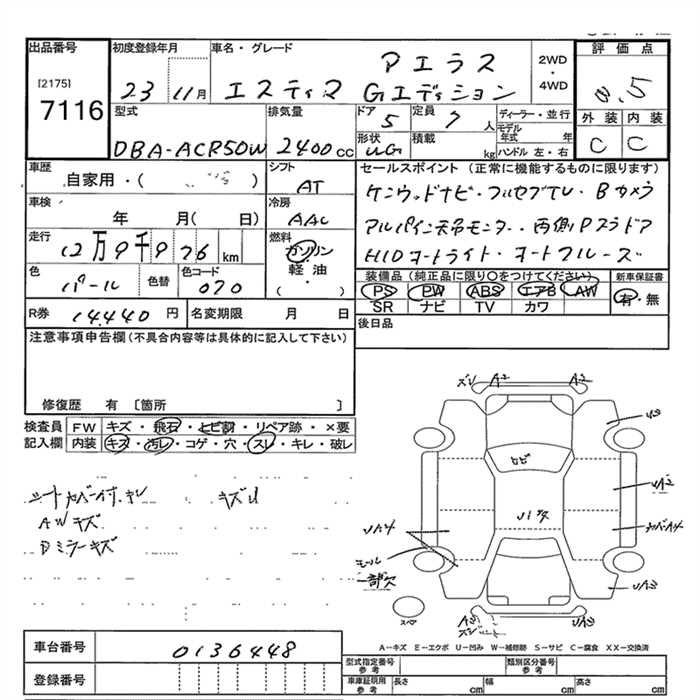 出品番号
[2175]
7116
初度登録年月
23 11月
車名・グレード
アエラス
エスティマ Gエディション
2WD・4WD
評価点
外装 内装
C C
型式
DBA-ACR50W
排気量
2400cc
ドア
5
定員
7人
形状
積載
kg
ディーラー・並行
モデル年式 年
ハンドル 左・右
車歴
自家用・( )
シフト
AT
セールスポイント (正常に機能するものに限ります)
ケンウッドナビ・フルセグTV・Bカメラ
アルパイン天吊モニター・両側Pスラドア
HIDオートライト・オートクルーズ
車検
年 月( 日)
冷房
AAC
走行
12万9千976km
燃料
ガソリン
軽・油
( )
色
パール
色替
色コード
070
装備品 (純正品に限り○をつけてください)
PS PW ABS エアB AW
SR ナビ TV カワ
新車保証書
有・無
R券 14,440円
名変期限 月 日
後日品
注意事項申告欄(不具合内容等は具体的に記入して下さい)
修復歴 有 [箇所 ]
検査員記入欄
FW キズ・飛石・トビ割・リペア跡・×要
内装 キズ・汚レ・コゲ・穴・スレ・キレ・破レ
シートカバー付・キレ キズU
AWキズ
Dミラーキズ
ズレ A2 A2
U3
トビ
UA2
UA4
モール一部欠
UA3
スペア
A-キズ E-エクボ U-凹み W-補修跡 S-サビ C-腐食 XX-交換済
車台番号
0136448
登録番号
型式指定番号参考
類別区分番号参考
車庫証明用参考
長さ cm
幅 cm
高さ cm